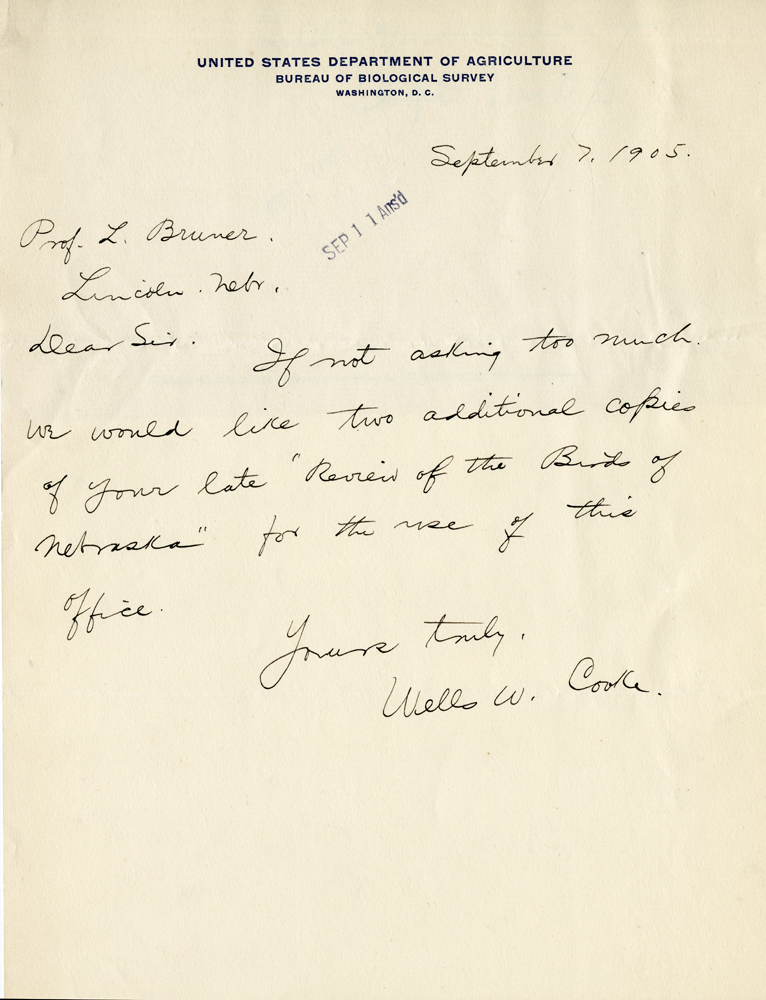 UNITED STATES DEPARTMENT OF AGRICULTURE
BUREAU OF BIOLOGICAL SURVEY
WASHINGTON, D. C.
September 7, 1905.
SEP 11 Ans'd
Prof. L. Bruner.
Lincoln. Nebr.
Dear Sir. If not asking too much.
we would like two additional copies
of your late "Review of the Birds of
Nebraska" for the use of this
office.
Yours truly,
Wells W. Cooke.